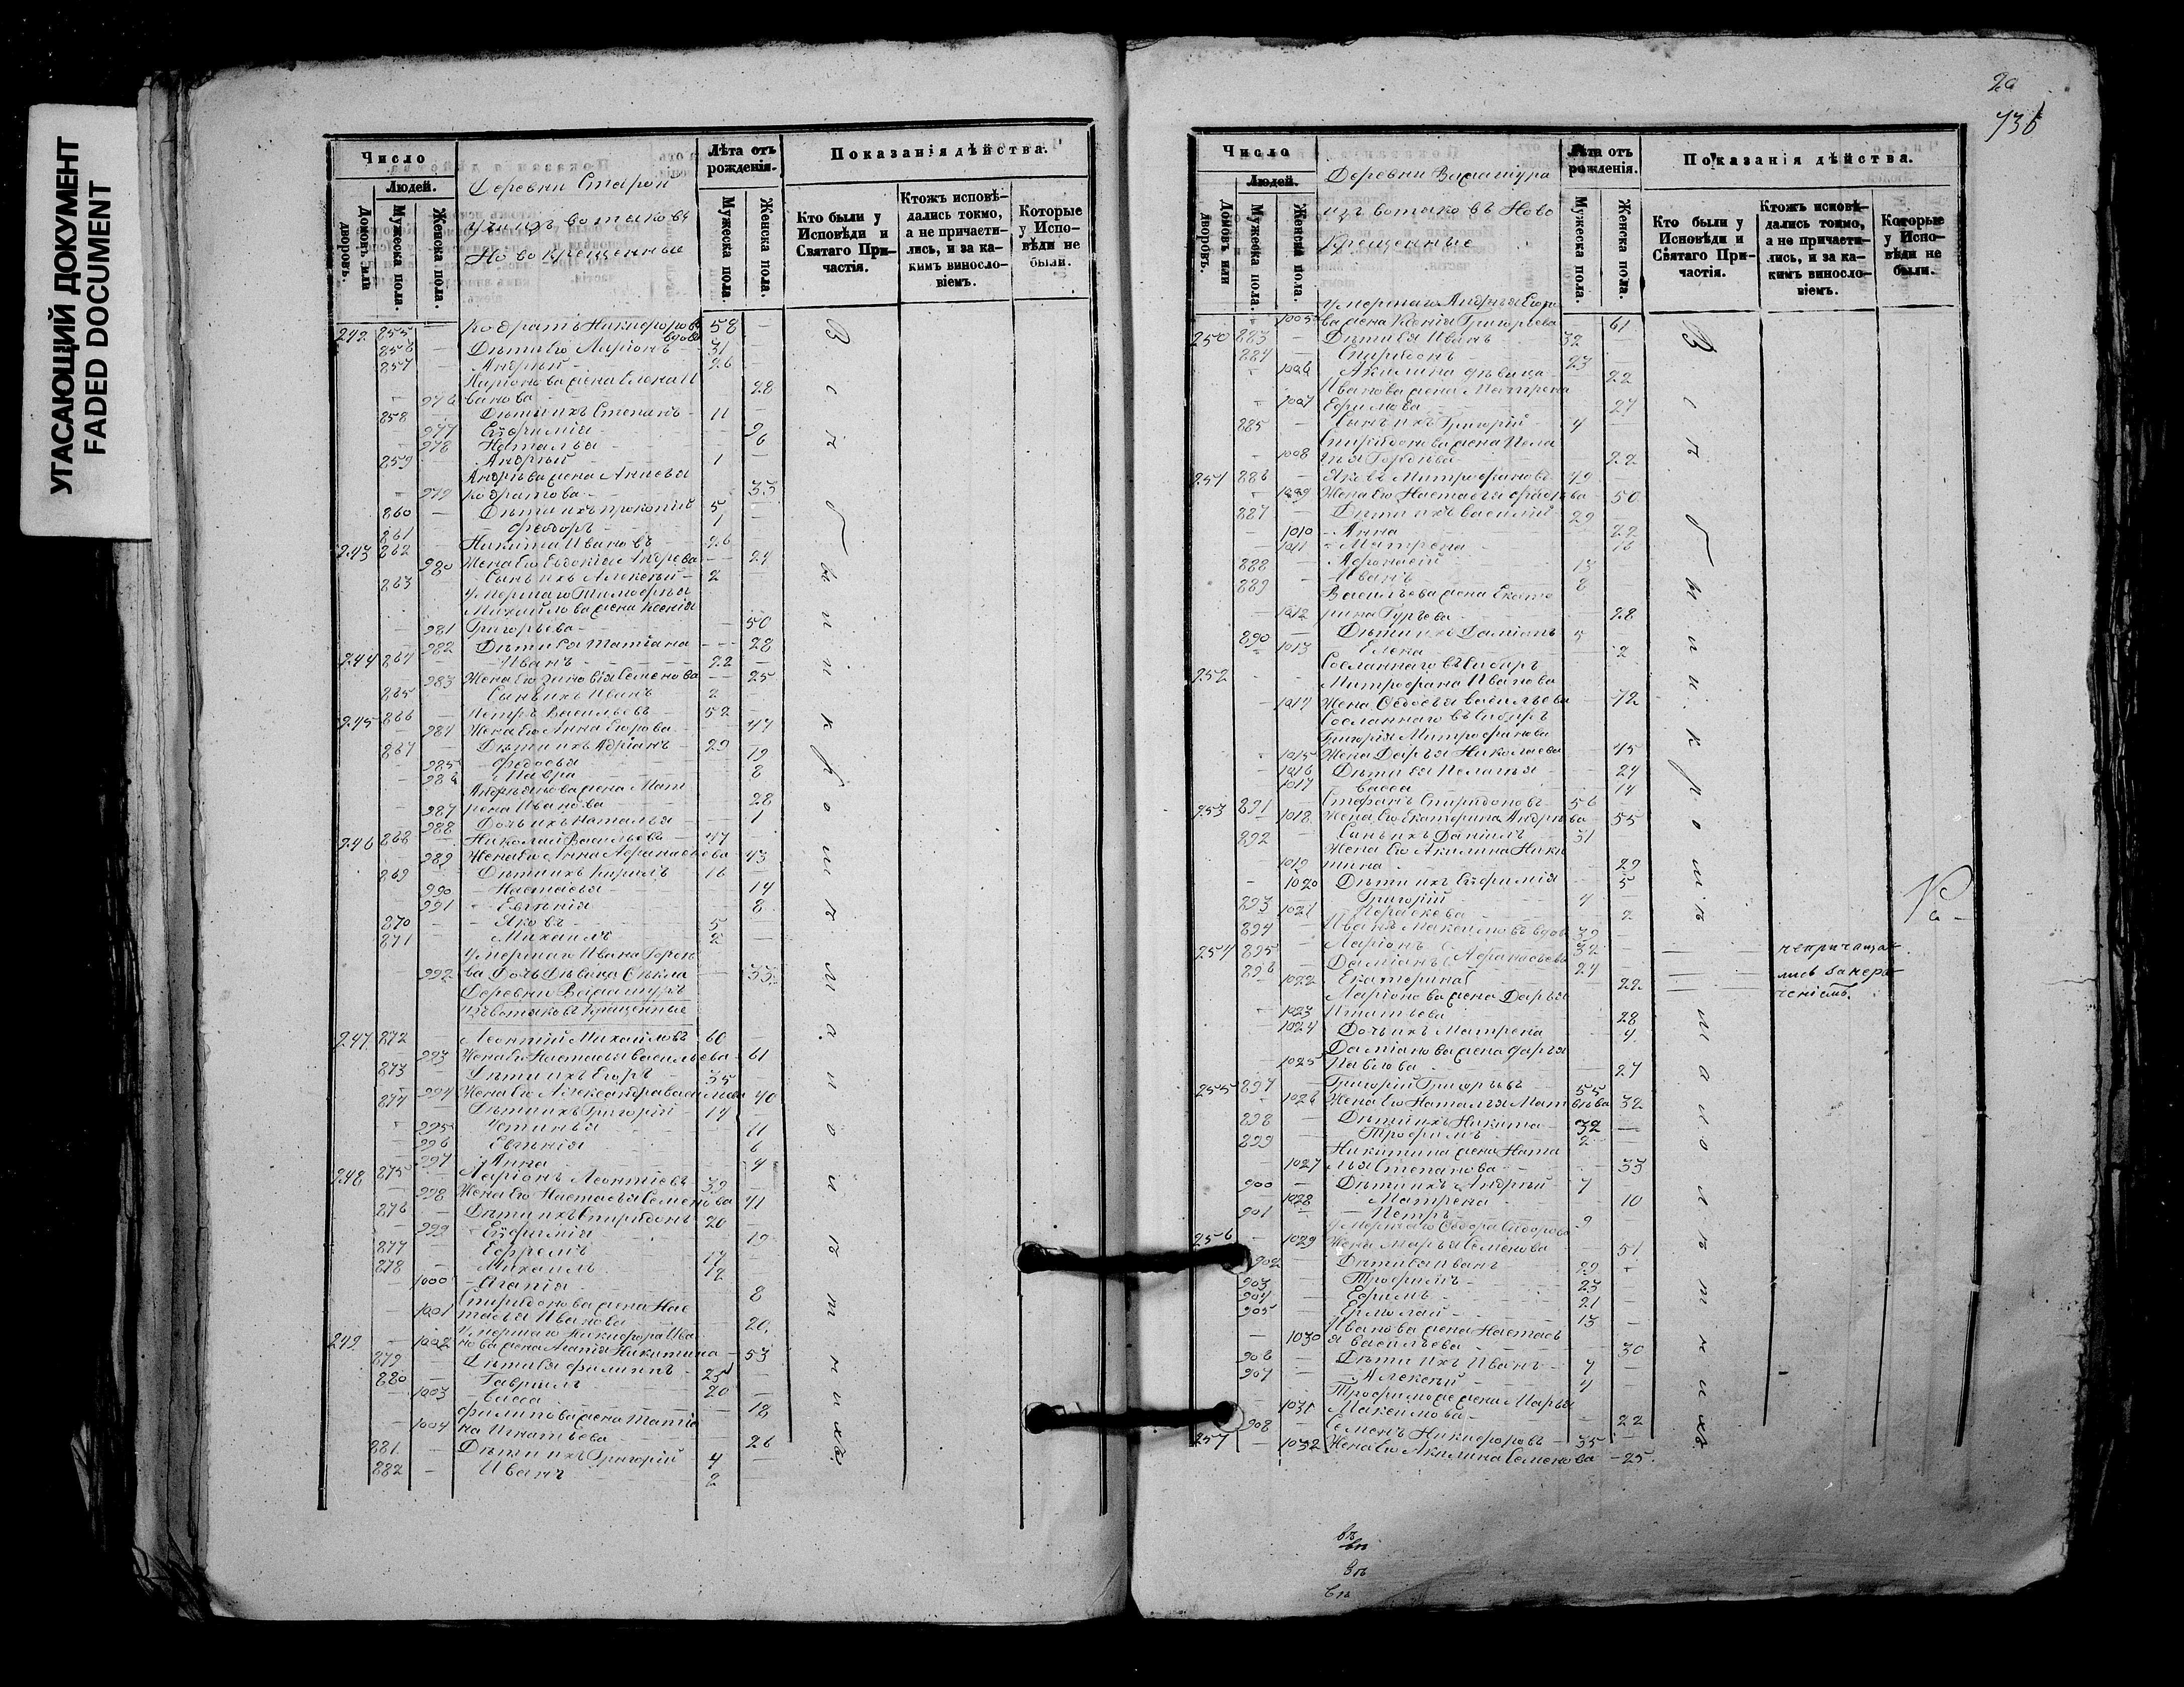 УГАСАЮЩИЙ ДОКУМЕНТ
FADED DOCUMENT
Число
Людей.
Домовъ или дворовъ.
Мужеска пола.
Женска пола.
Деревни Старои
изъ вотяковъ
Новокрещенные
Лѣта отъ рожденія.
Мужеска пола.
Женска пола.
Показанія дѣйства.
Кто были у Исповѣди и Святаго Причастія.
Ктожъ исповѣдались токмо, а не причастились, и за какимъ винословіемъ.
Которые у Исповѣди не были.
242 855 — Кодратъ Никифоровъ вдовъ 58 —
856 — Дѣти его Ларіонъ 31
857 — Андрей 26
Ларіонова жена Елена И
976 ванова 28
858 Дѣти ихъ Степанъ 11
977 Еѵфимія 9
978 Наталья 6
859 Андрей 1
Андреева жена
979 Кодратова 33
860 Дѣти ихъ Прокопій 5
861 Ѳеодоръ 1
243 862 Никита Ивановъ 26
980 Жена его Евдокія Андреева 24
863 Сынъ ихъ Алексѣй 2
Умершаго Тимоѳея
Михайлова жена Ксенія
981 Григорьева 50
982 Дѣти ея Татіана 28
244 864 Иванъ 22
983 Жена его Зиновія Семенова 25
865 Сынъ ихъ Иванъ 2
245 866 Петръ Васильевъ 52
984 Жена его Анна Егорова 47
867 Дѣти ихъ Адріанъ 29
985 Ѳедосья 19
986 Мавра 8
Андреянова жена Мат
987 рена Иванова 28
988 Дочь ихъ Наталья 1
246 868 Николай Васильевъ 47
989 Жена его Анна Аѳанасьева 43
869 Дѣти ихъ Кирилъ 16
990 Настасья 14
991 Евгенія 8
870 Яковъ 5
871 Михаилъ 2
Умершаго Ивана Горде
992 ва Дочь Дѣвица Ѳекла 33
Деревни Важашуръ
изъ вотяковъ крещенные
247 872 Леонтій Михайловъ 60
993 Жена его Настасья Васильева 61
873 Дѣти ихъ Егоръ 35
994 Жена его Александра Васильева 40
874 Дѣти ихъ Григорій 14
995 Устинья 11
996 Евгенія 6
997 Анна 4
248 875 Ларіонъ Леонтіевъ 39
998 Жена его Настасья Семенова 41
876 Дѣти ихъ Спиридонъ 20
999 Еѵфимія 19
877 Ефремъ 17
878 Михаилъ 12
1000 Агапія 8
Спиридонова жена Нас
1001 тасья Иванова 20
249 Умершаго Никифора Ива
1002 нова жена Агапія Никитина 53
879 Дѣти ея Филиппъ 25
880 Гавріилъ 20
1003 Васса 18
Филипова жена Татіа
1004 на Игнатьева 26
881 Дѣти ихъ Григорій 4
882 Иванъ 2
20
736
Число
Людей.
Домовъ или дворовъ.
Мужеска пола.
Женска пола.
Деревни Важашура
изъ вотяковъ Ново
крещенные
Лѣта отъ рожденія.
Мужеска пола.
Женска пола.
Показанія дѣйства.
Кто были у Исповѣди и Святаго Причастія.
Ктожъ исповѣдались токмо, а не причастились, и за какимъ винословіемъ.
Которые у Исповѣди не были.
Умершаго Андрея Егоро
1005 ва жена Ксенія Григорьева 61
250 883 Дѣти ея Иванъ 32
884 Спиридонъ 23
1006 Акилина дѣвица 22
Иванова жена Матрена
1007 Ефимова 27
885 Сынъ ихъ Григорій 4
Спиридонова жена Пела
1008 гея Гордеева 22
251 886 Яковъ Митрофановъ 49
1009 Жена его Настасья 50
887 Дѣти ихъ Василій 29
1010 Анна 22
1011 Матрена 16
888 Аѳонасій 13
889 Иванъ 8
Васильева жена Екате
1012 рина Гурьева 28
890 Дѣти ихъ Даміанъ 5
1013 Елена 2
252 Сосланнаго въ Сибирь
Митрофана Иванова
1014 Жена Ѳедосья Васильева 72
Сосланнаго въ Сибирь
Григорія Митрофанова
1015 Жена Дарья Николаева 45
1016 Дѣти ея Пелагея 24
1017 Васса 14
253 891 Стефанъ Спиридоновъ 56
1018 Жена его Екатерина Андреева 55
892 Сынъ ихъ Даніилъ 31
Жена его Акилина Ники
1019 тина 29
1020 Дѣти ихъ Еѵфимія 5
893 Григорій 4
1021 Параскева 2
894 Иванъ Максимовъ вдовъ 39
254 895 Ларіонъ 32
896 Даміанъ Аѳанасьевы 24
1022 Екатерина 22
непричаща-
лись за нера-
деніемъ.
Ларіонова жена Дарья
1023 Игнатьева 28
1024 Дочь ихъ Матрена 4
Даміанова жена Дарья
1025 Павлова 27
255 897 Григорій Григорьевъ 55
1026 Жена его Наталья Матвѣева 32
898 Дѣти ихъ Никита 32
899 Трофимъ 2
Никитина жена Ната
1027 лья Степанова 33
900 Дѣти ихъ Андрей 7
1028 Матрена 10
901 Петръ 9
Умершаго Ѳедора Сидорова
256 1029 Жена Марья Семенова 51
902 Дѣти ея Иванъ 29
903 Трофимъ 23
904 Ефимъ 21
905 Ермолай 13
Иванова жена Настась
1030 я Васильева 30
906 Дѣти ихъ Иванъ 7
907 Алексѣй 4
Трофимова жена Марья
1031 Максимова 22
257 908 Семенъ Никифоровъ 35
1032 Жена его Акилина Семенова 25